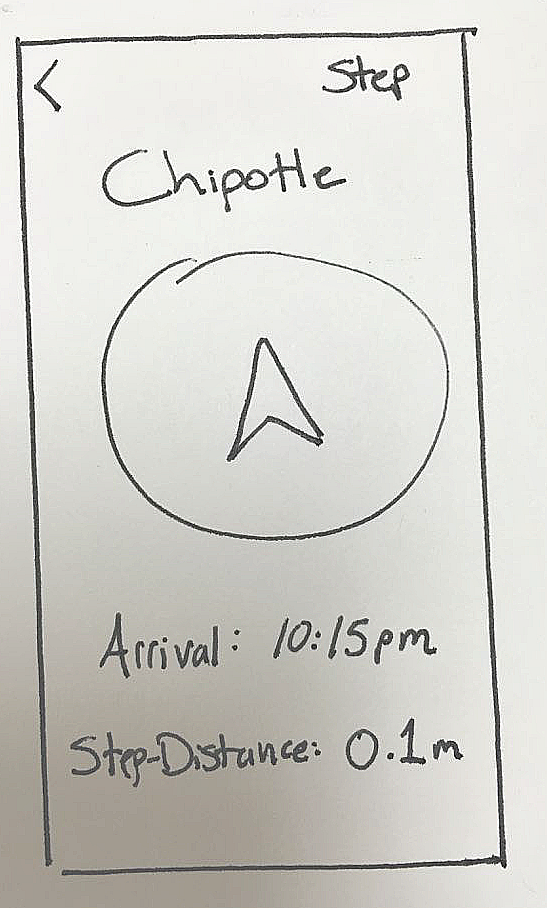 Step
Chipotle
Arrival: 10:15pm
Step-Distance: 0.1m